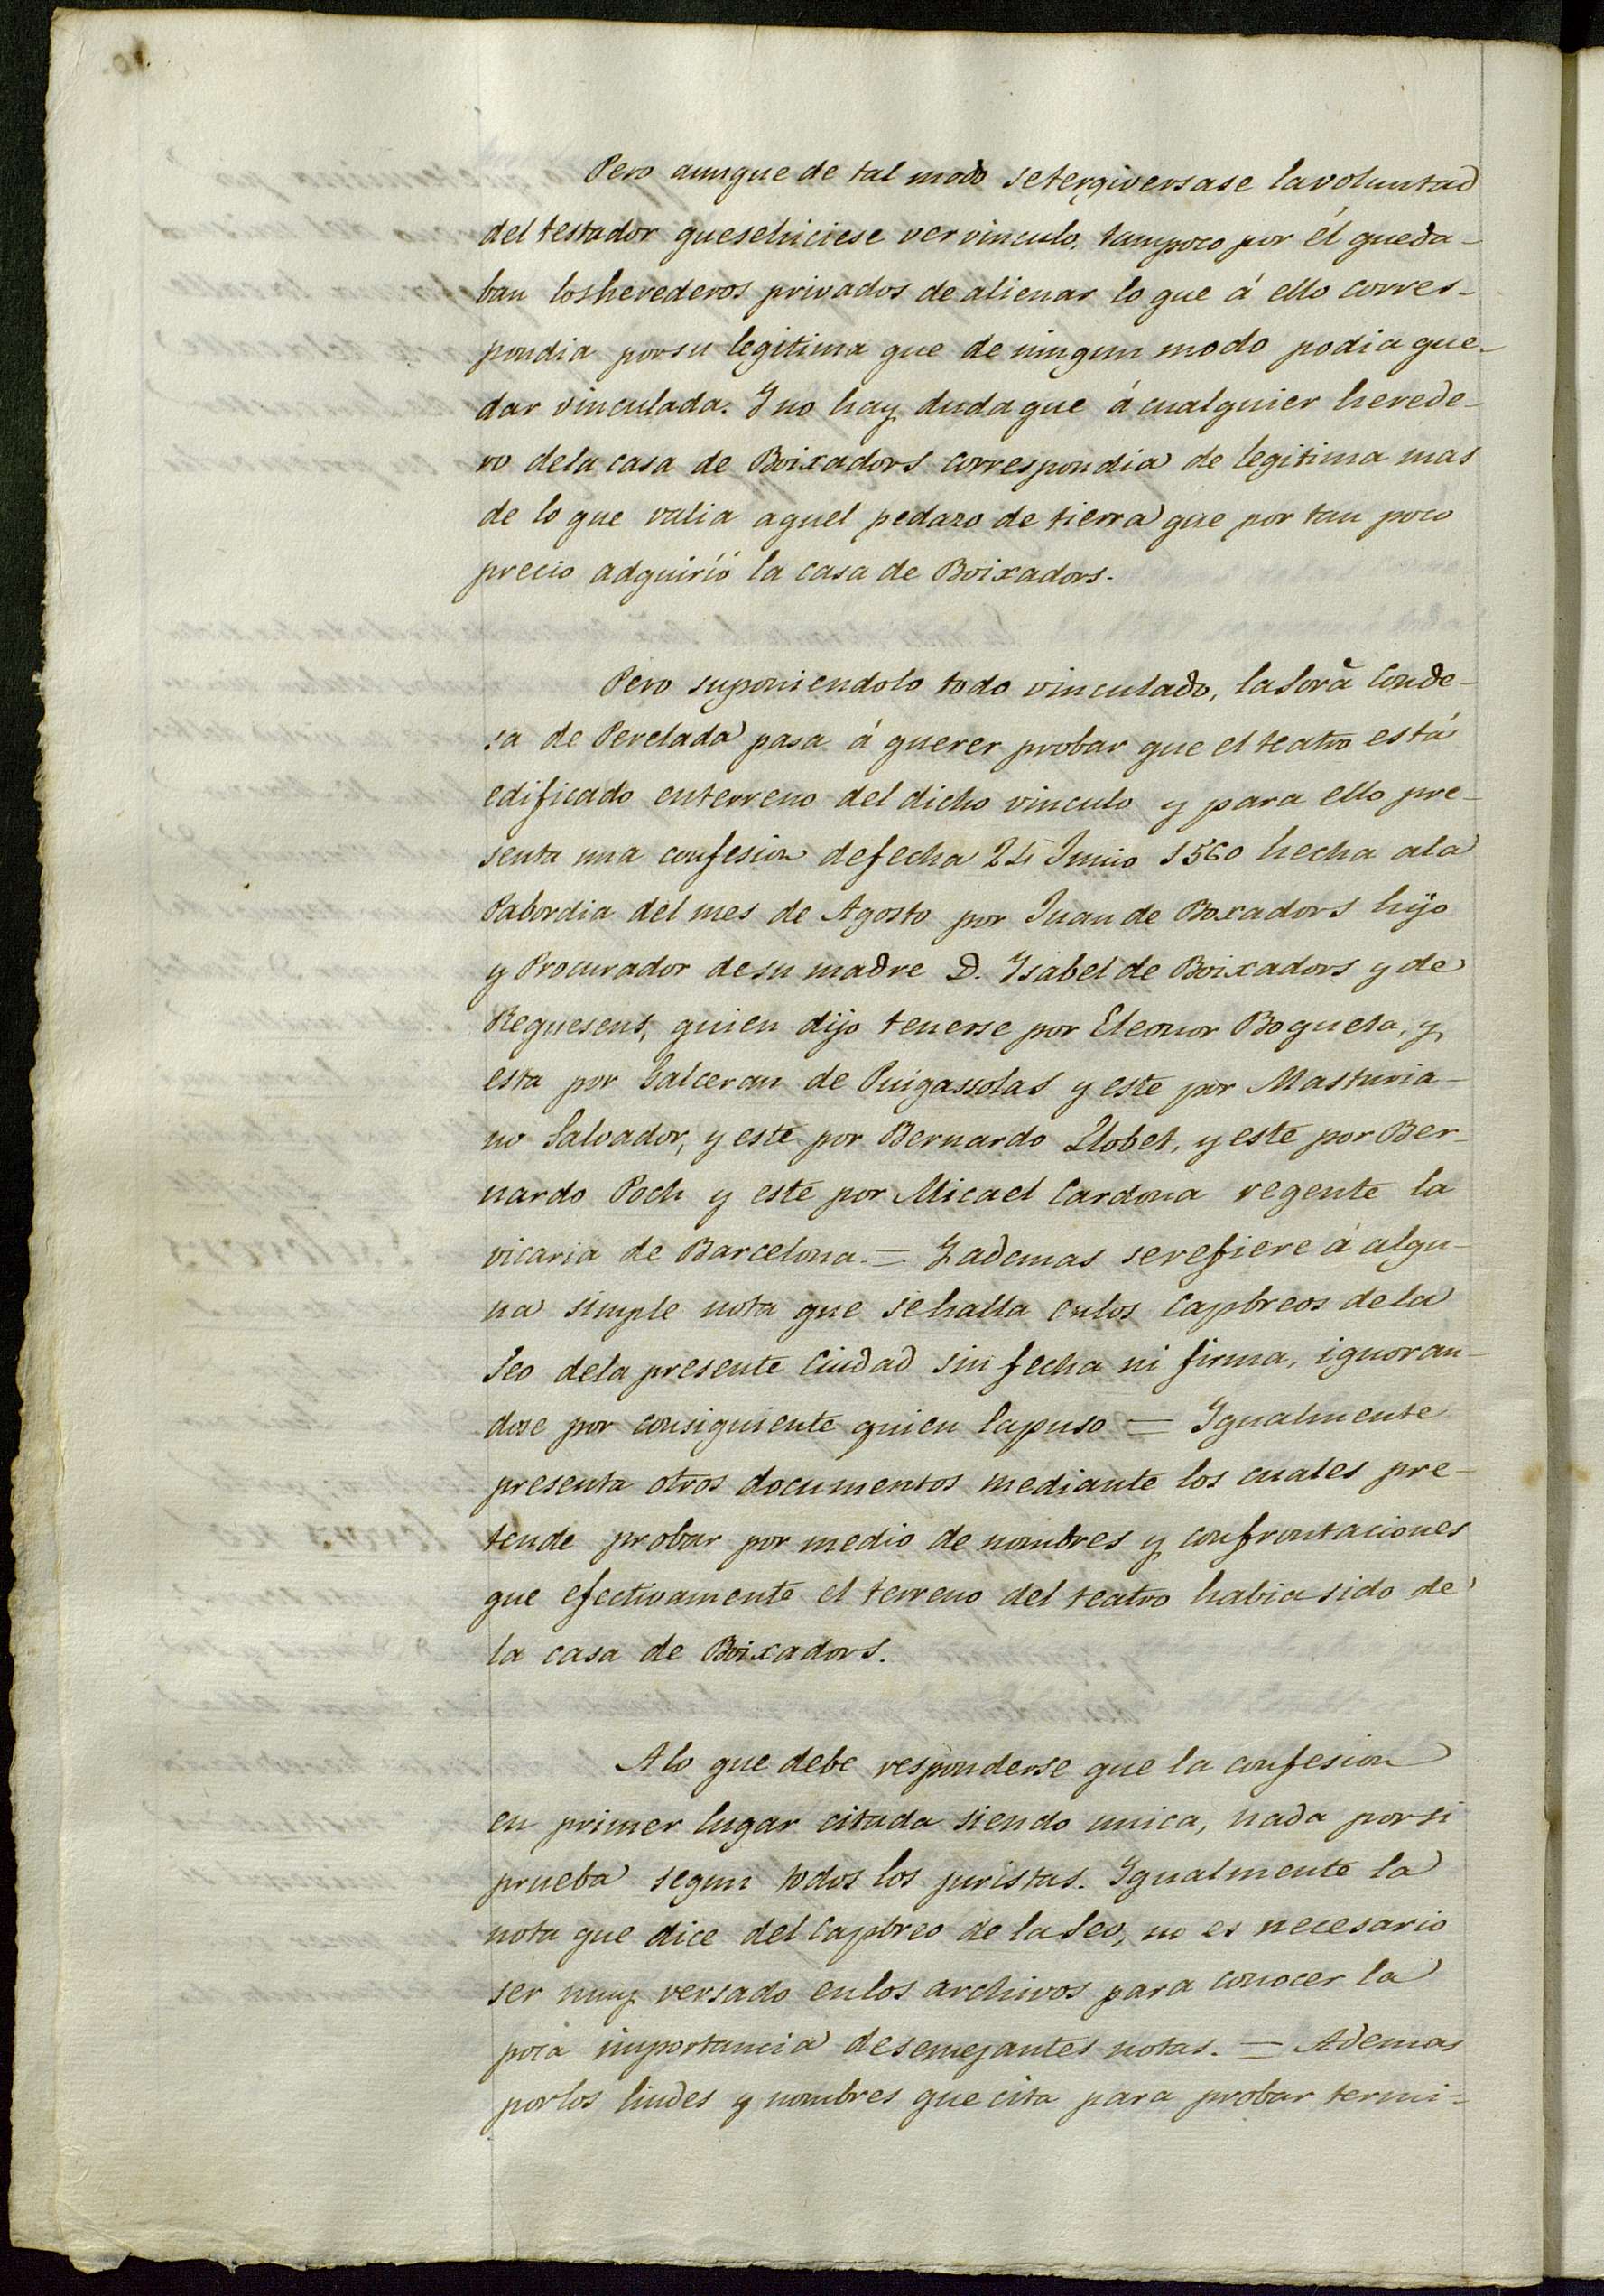 Pero aunque de tal modo setergiversase lavoluntad
del testador quesehiciese ver vinculo, tampoco por él queda-
ban losherederos privados de alienar lo que á ello corres-
pondia porsu legitima que de ningun modo podia que-
dar vinculada. Y no hay duda que á cualquier herede-
ro dela casa de Boixadors correspondia de legitima mas
de lo que valia aquel pedazo de tierra que por tan poco
precio adquirió la casa de Boixadors.
Pero suponiendolo todo vinculado, la Sora Conde-
sa de Perelada pasa á querer probar que el teatro está
edificado enterreno del dicho vinculo y para ello pre-
senta una confesion defecha Junio 1560 hecha ala
Pabordia del mes de Agosto por Juan de Boxadors hijo
y Procurador desu madre D. Ysabel de Boixadors y de
Requesens, quien dijo tenerse por Eleonor Boqueta, y
esta por Galceran de Puigassolas y este por Masturia-
no Salvador, y este por Bernardo Llobet, y este por Ber-
nardo Poch y este por Micael Cardona regente la
vicaria de Barcelona. = Y ademas serefiere á algu-
na simple nota que sehalla enlos Capbreos dela
Seo dela presente Ciudad sin fecha ni firma, ignoran-
dose por consiguiente quien lapuso = Ygualmente
presenta otros documentos mediante los cuales pre-
tende probar por medio de nombres y confrontaciones
que efectivamente el terreno del teatro habia sido de
la casa de Boixadors.
A lo que debe responderse que la confesion
en primer lugar citada siendo unica, nada porsi
prueba segun todos los juristas. Ygualmente la
nota que dice del Capbreo de la Seo, no es necesario
ser muy versado enlos archivos para conocer la
poca importancia desemejantes notas. = Ademas
porlos lindes y nombres que cita para probar termi-